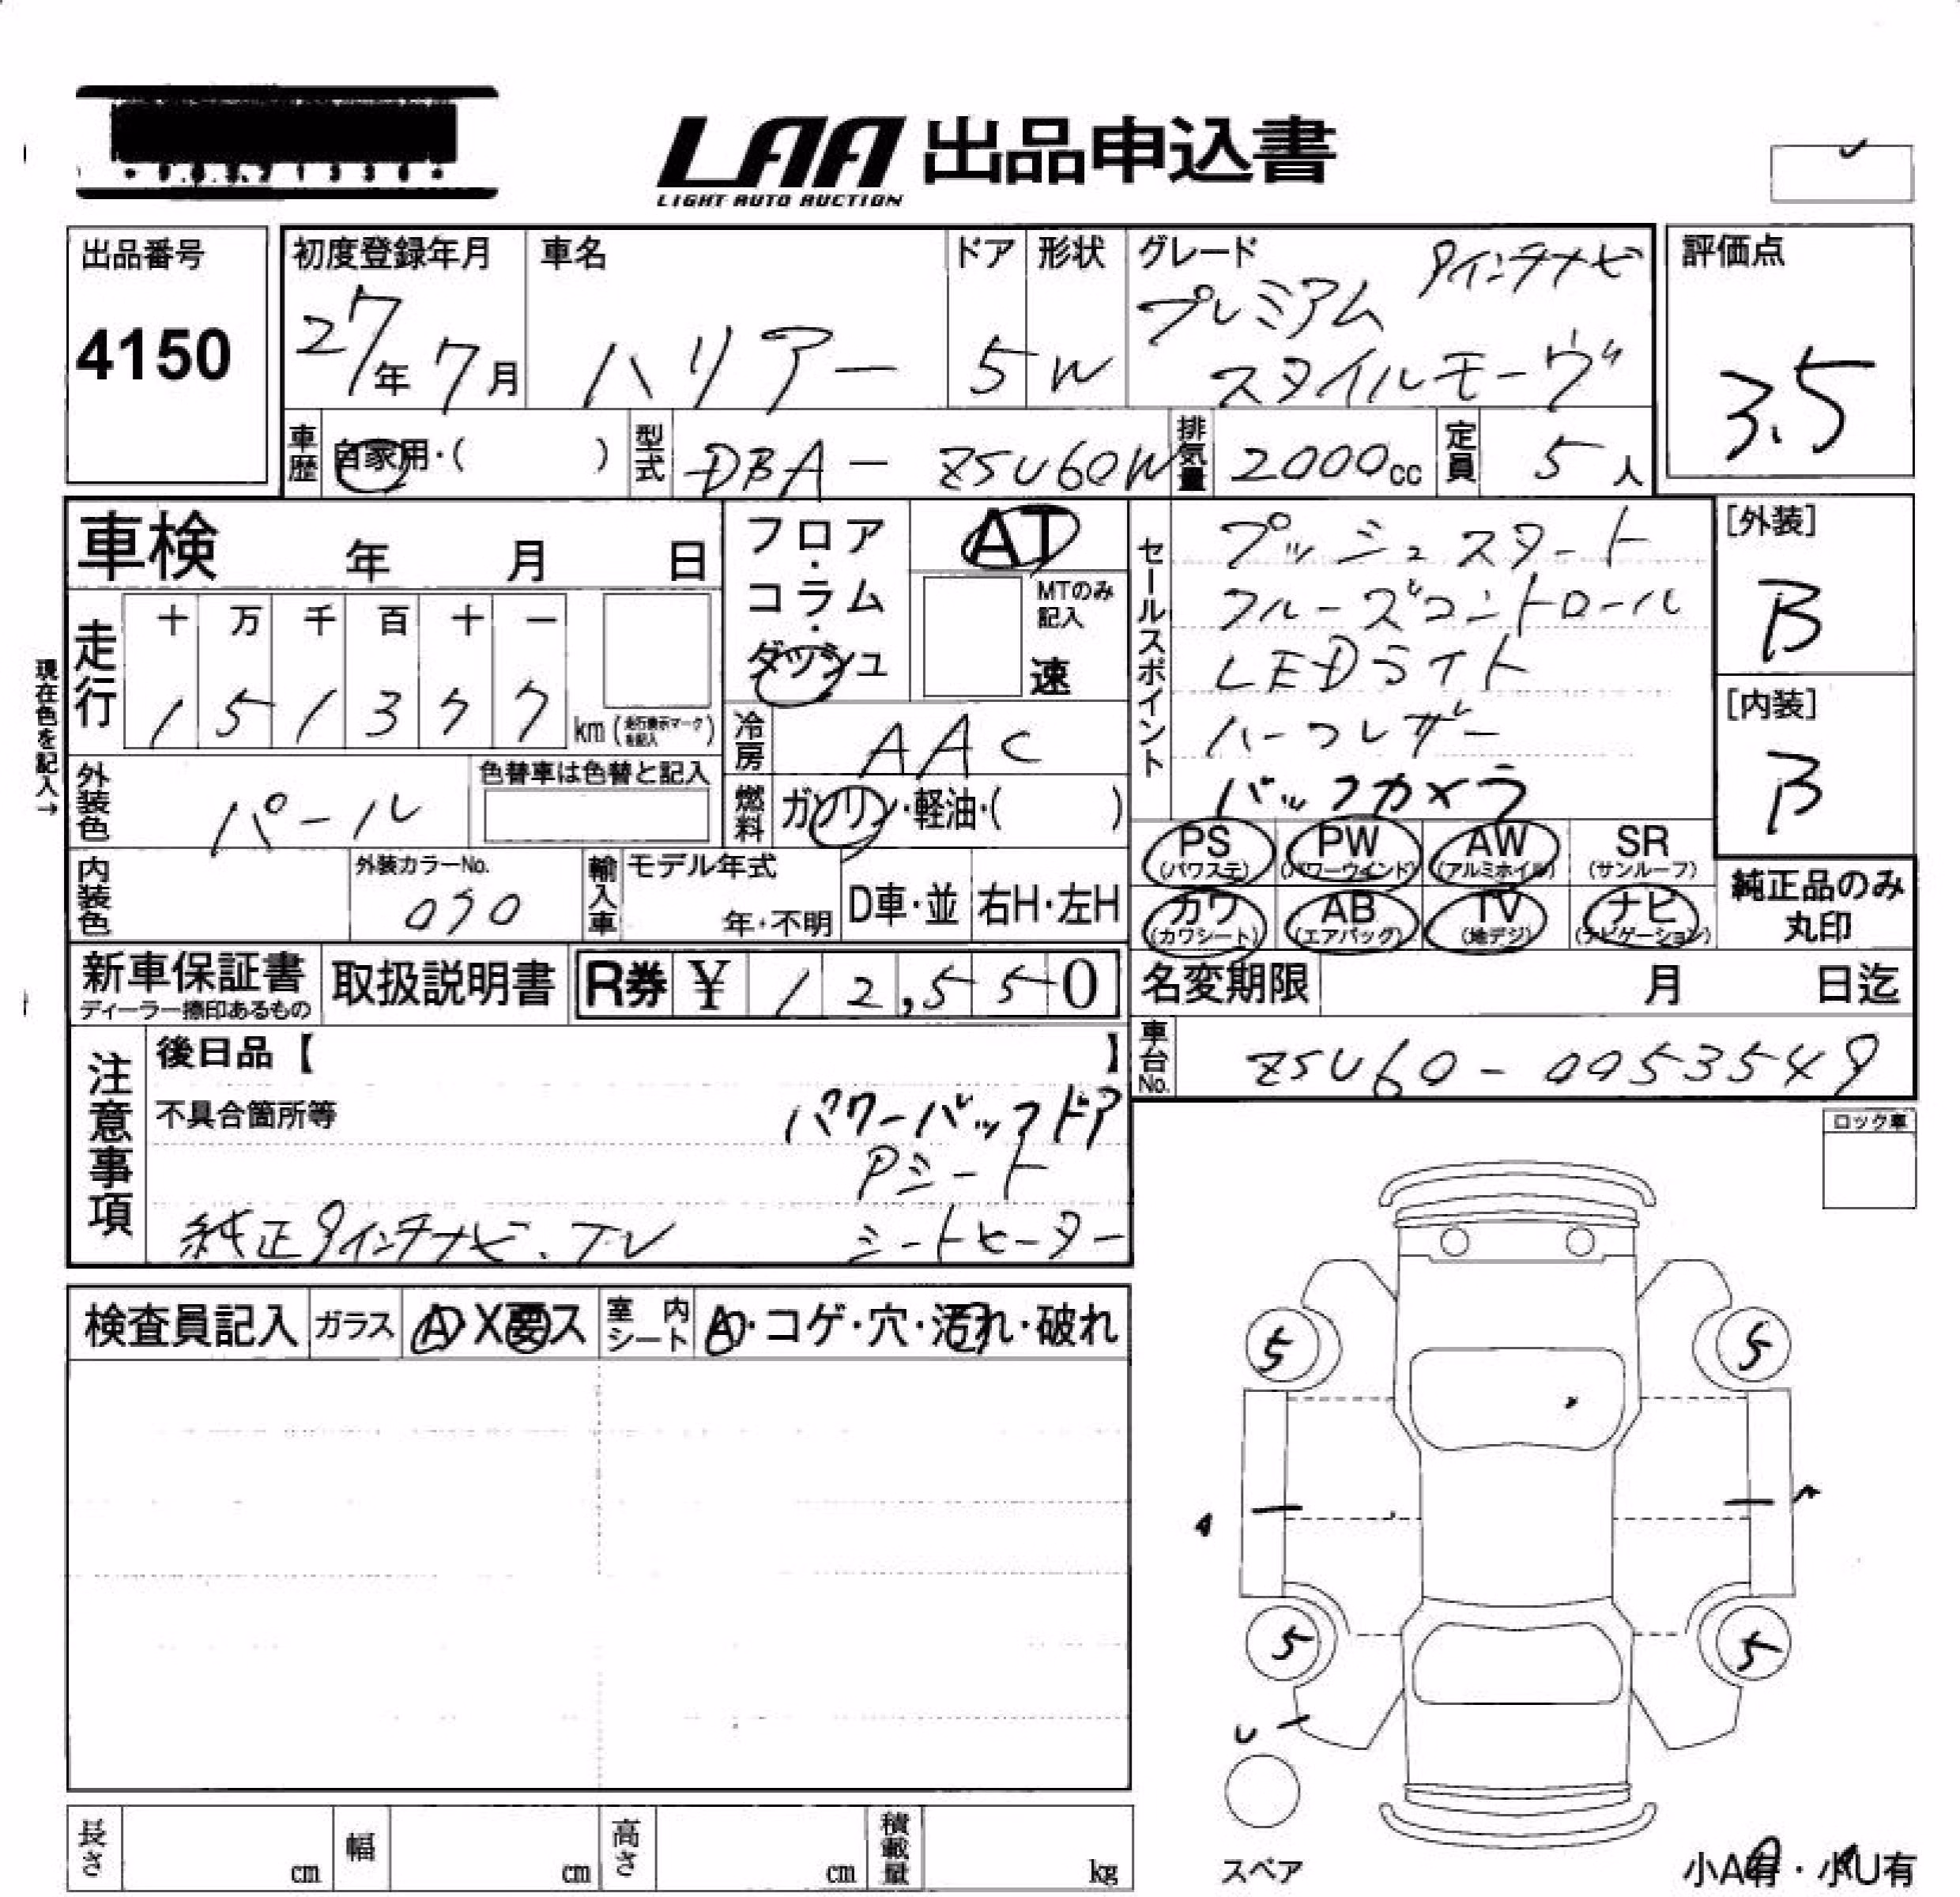 LAA 出品申込書
LIGHT AUTO AUCTION
出品番号
4150
初度登録年月
27年 7月
車名
ハリアー
ドア
5
形状
W
グレード
9インチナビ
プレミアム
スタイルモーヴ
評価点
3.5
車歴
自家用・( )
型式
DBA - ZSU60W
排気量
2000cc
定員
5人
車検 年 月 日
フロア・コラム・ダッシュ
AT
MTのみ記入
速
走行
十 万 千 百 十 一
1 5 1 3 7 7
km (走行表示マークを記入)
現在色を記入→
外装色
パール
色替車は色替と記入
冷房
AAC
燃料
ガソリン・軽油・( )
内装色
外装カラーNo.
070
輸入車
モデル年式
年・不明
D車・並
右H・左H
セールスポイント
プッシュスタート
クルーズコントロール
LEDライト
ハーフレザー
バックカメラ
[外装]
B
[内装]
B
PS (パワステ)
PW (パワーウインド)
AW (アルミホイル)
SR (サンルーフ)
カワ (カワシート)
AB (エアバッグ)
TV (地デジ)
ナビ (ナビゲーション)
純正品のみ
丸印
新車保証書
ディーラー捺印あるもの
取扱説明書
R券 ¥ 12,550
名変期限 月 日迄
車台No.
ZSU60-0053549
注意事項
後日品【 】
不具合箇所等
パワーバックドア
Pシート
純正9インチナビ.TV
シートヒーター
ロック車
検査員記入
ガラス
A・X要ス
室内シート
A・コゲ・穴・汚れ・破れ
5
5
A
5
5
U
スペア
小A有・小U有
長さ cm
幅 cm
高さ cm
積載量 kg